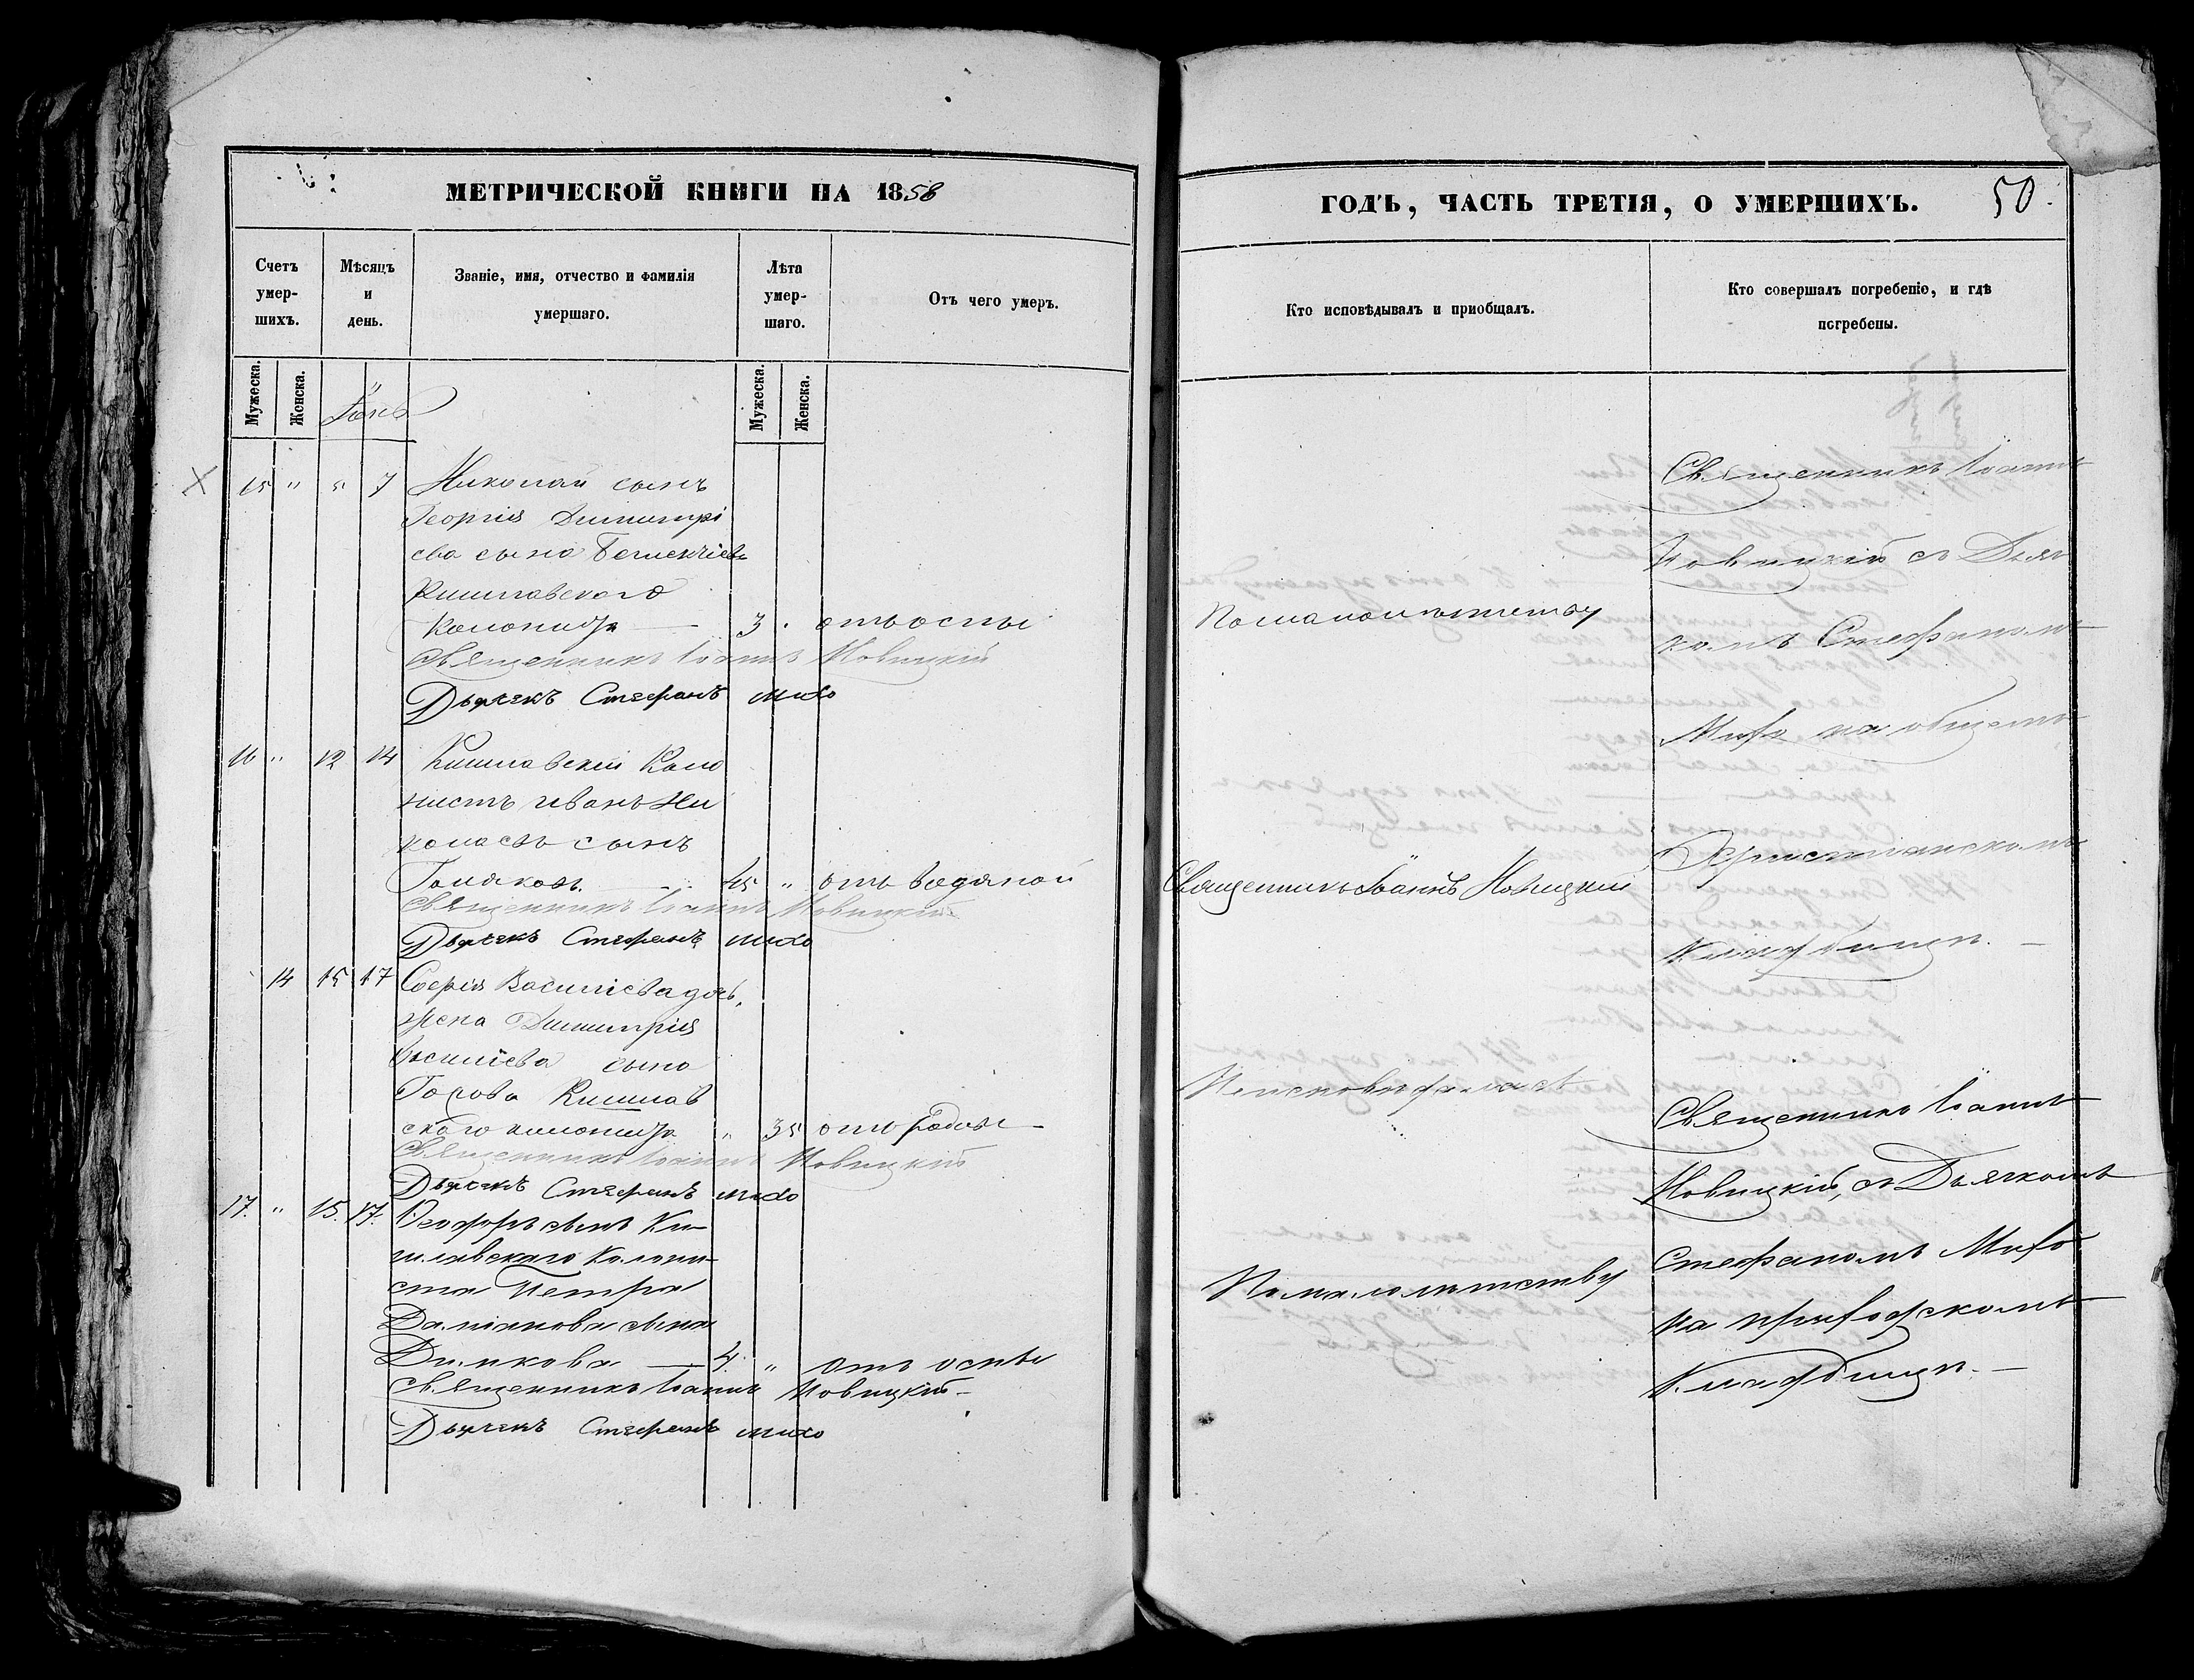 МЕТРИЧЕСКОЙ КНИГИ НА 1858
Счетъ умер-шихъ.
Мѣсяцъ и день.
Званіе, имя, отчество и фамилія умершаго.
Лѣта умер-шаго.
Отъ чего умеръ.
Мужеска.
Женска.
Мужеска.
Женска.
15 " 5 7 Николай сынъ
Георгія Димитрі
ева сына
Кишлавского
Колониста 3 отъ оспы
Священникъ Іоаннъ Новицкій
Дьячекъ Стефанъ Михо
16 " 12 14 Кишлавскій Коло
нистъ Иванъ Ни
колаевъ сынъ
45 " отъ водяной
Священникъ Іоаннъ Новицкій
Дьячекъ Стефанъ Михо
14 15 17 Софія Василіева дочь,
жена Димитрія
Василіева сына
Кишлав
ского колониста " 35 отъ родовъ
Священникъ Іоаннъ Новицкій
Дьячекъ Стефанъ Михо
17. " 15. 17. Ѳеодоръ сынъ Ки-
шлавскаго Колони-
ста Петра
Даміанова сына
Димкова 4. " отъ оспы
Священникъ Іоаннъ Новицкій
Дьячекъ Стефанъ Михо
ГОДЪ, ЧАСТЬ ТРЕТІЯ, О УМЕРШИХЪ. 50.
Кто исповѣдывалъ и пріобщалъ.
Кто совершалъ погребеніе, и гдѣ погребены.
По малолѣтству
Священникъ Іоаннъ Новицкій
По малолѣтству
Священникъ Іоаннъ
Новицкій съ Дьяч
комъ Стефаномъ
Михо на общемъ
Христіанскомъ
Кладбищѣ.
Священникъ Іоаннъ
Новицкій, съ Дьячкомъ
Стефаномъ Михо
на приходскомъ
Кладбищѣ.